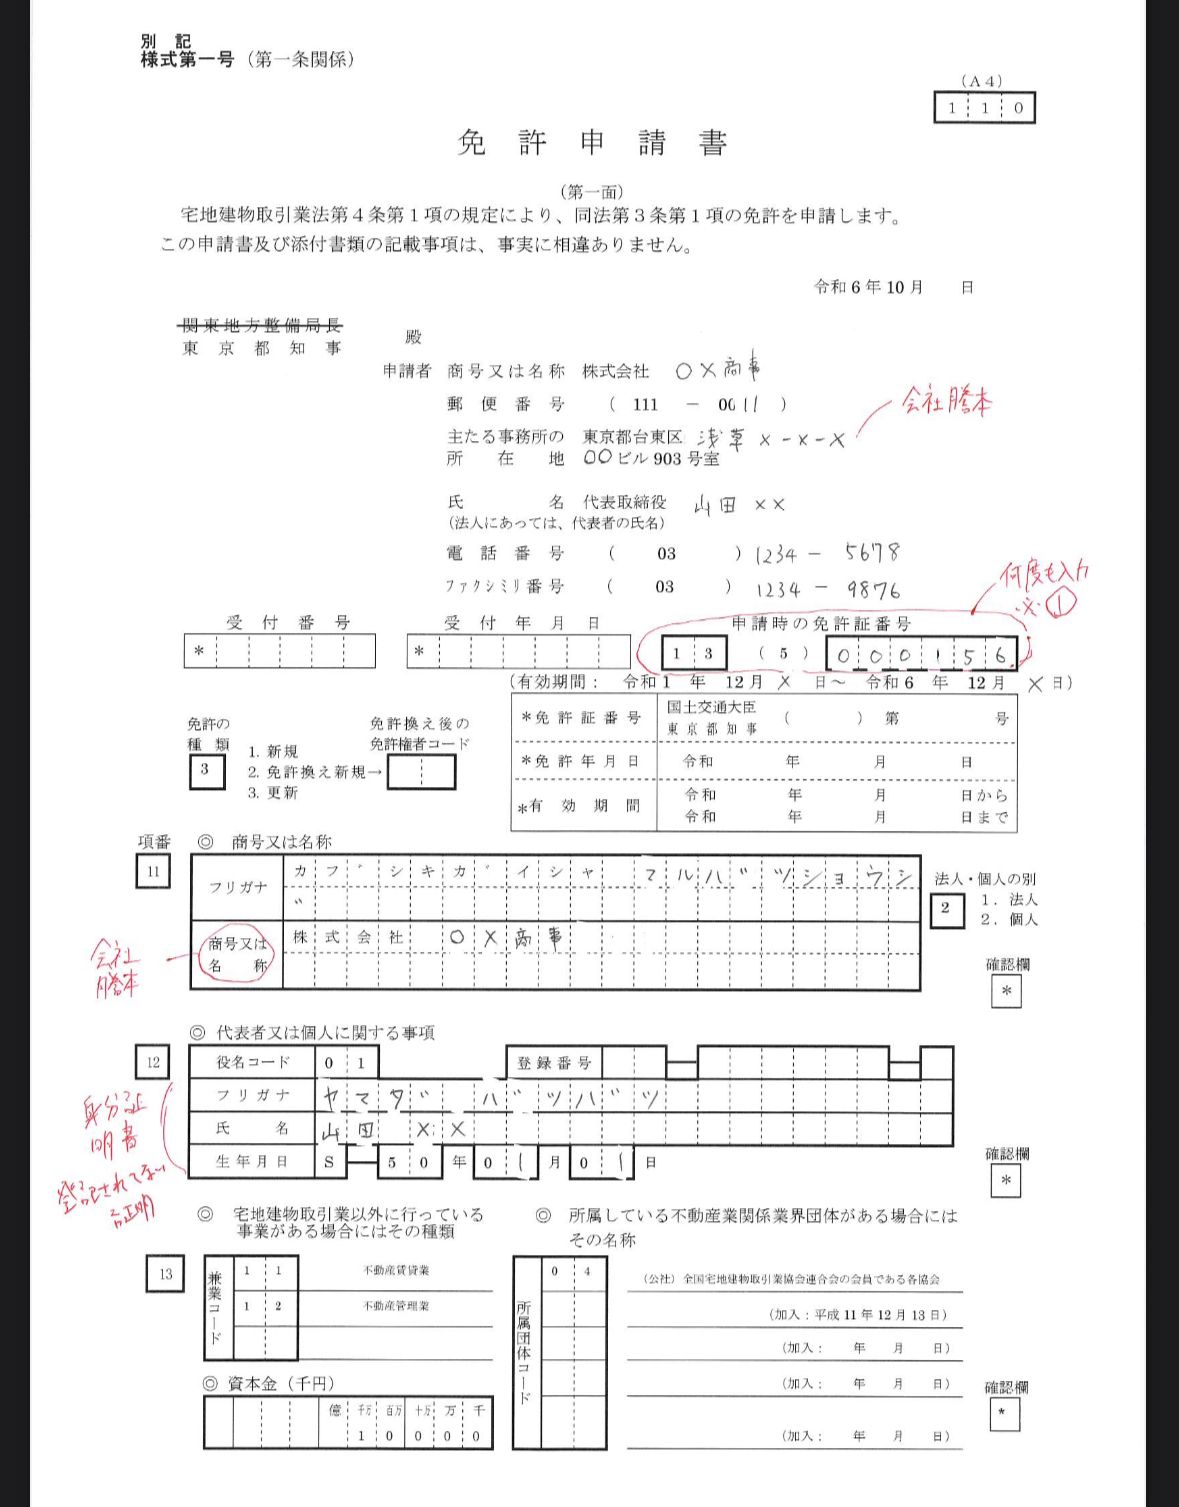 別 記
様式第一号（第一条関係）
（A4）
1 1 0
免 許 申 請 書
（第一面）
宅地建物取引業法第４条第１項の規定により、同法第３条第１項の免許を申請します。
この申請書及び添付書類の記載事項は、事実に相違ありません。
令和 6 年 10 月 日
関東地方整備局長
東 京 都 知 事
殿
申請者 商号又は名称 株式会社 ○×商事
郵 便 番 号 （ 111 － 0011 ）
会社謄本
主たる事務所の 東京都台東区 浅草 ×-×-×
所 在 地 ○○ビル 903 号室
氏 名 代表取締役 山田 ××
（法人にあっては、代表者の氏名）
電 話 番 号 （ 03 ） 1234 － 5678
ファクシミリ番号 （ 03 ） 1234 － 9876
何度も入力
※①
受 付 番 号 受 付 年 月 日 申請時の免許証番号
＊ ＊ 1 3 （ 5 ） 0 0 0 1 5 6
（有効期間： 令和 1 年 12 月 × 日～ 令和 6 年 12 月 × 日）
免許の
種 類
3
1. 新規
2. 免許換え新規→
3. 更新
免許換え後の
免許権者コード
＊免 許 証 番 号 国土交通大臣 東 京 都 知 事 （ ） 第 号
＊免 許 年 月 日 令和 年 月 日
＊有 効 期 間 令和 年 月 日から
令和 年 月 日まで
項番 ◎ 商号又は名称
11
フリガナ カ フ ゛ シ キ カ ゛ イ シ ャ マ ル ハ ゛ ツ シ ョ ウ シ
゛
商号又は
名 称
株 式 会 社 ○ × 商 事
会社
謄本
法人・個人の別
2
1. 法人
2. 個人
確認欄
＊
◎ 代表者又は個人に関する事項
12
役名コード 0 1 登録番号
フリガナ ヤ マ タ ゛ ハ ゛ ツ ハ ゛ ツ
氏 名 山 田 × ×
生年月日 S 5 0 年 0 1 月 0 1 日
身分証
明書
登記されてない
証明
確認欄
＊
◎ 宅地建物取引業以外に行っている
事業がある場合にはその種類
◎ 所属している不動産業関係業界団体がある場合には
その名称
13
兼業コード
1 1 不動産賃貸業
1 2 不動産管理業
所属団体コード
0 4
（公社）全国宅地建物取引業協会連合会の会員である各協会
（加入：平成 11 年 12 月 13 日）
（加入： 年 月 日）
（加入： 年 月 日）
（加入： 年 月 日）
◎ 資本金（千円）
億 千万 百万 十万 万 千
1 0 0 0 0
確認欄
＊